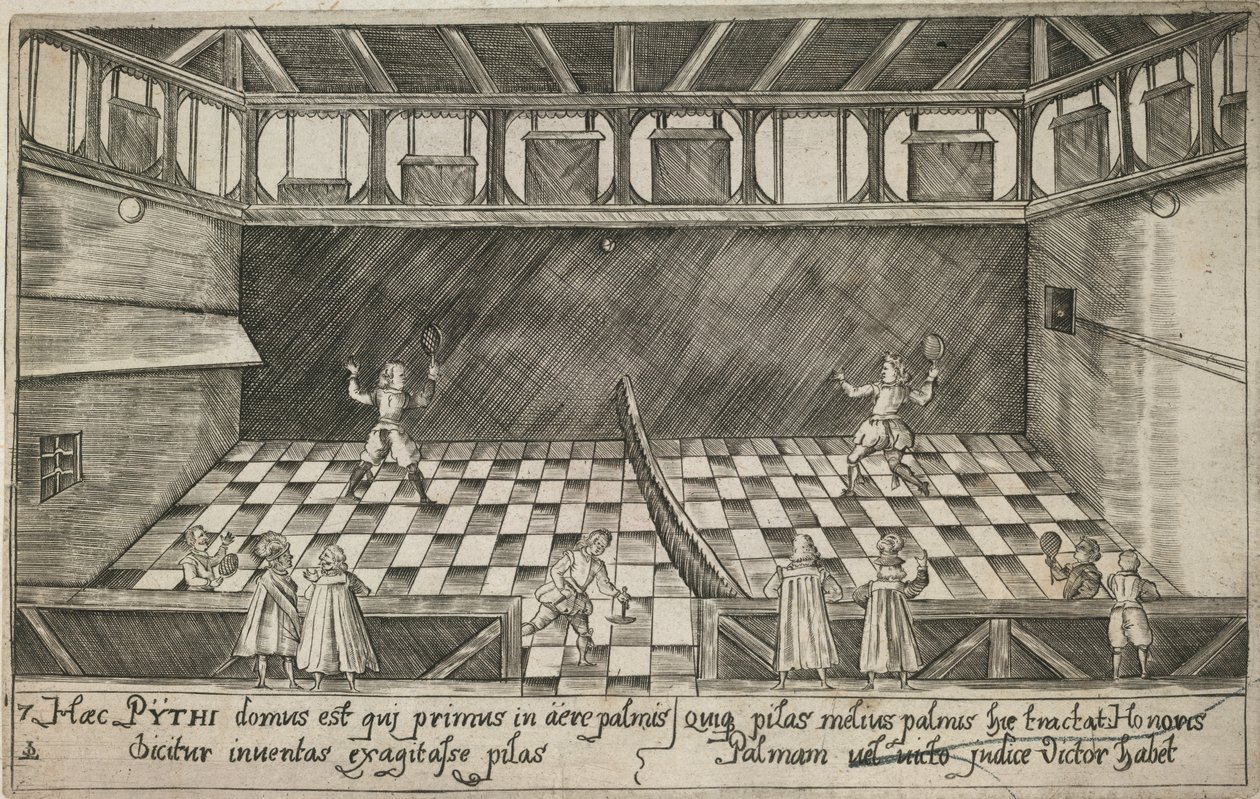 7. Hæc PŸTHI domus est quj primus in äere palmis
Dicitur inventas exagitaſse pilas
Quiq pilas melius palmis hic tractat: Honoris
Palmam vel victo judice Victor habet